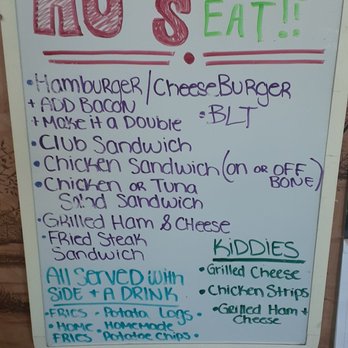 EAT!!
• Hamburger/CheeseBurger
+ ADD BACON
+ Make it a Double
• BLT
• Club Sandwich
• Chicken Sandwich (on or OFF BONE)
• Chicken or Tuna
Salad Sandwich
• Grilled Ham & Cheese
• Fried Steak
Sandwich
All Served with
SIDE + A DRINK
• FRIES • Potato Logs •
• HOME • Homemade
FRIES Potatoe Chips •
KIDDIES
• Grilled Cheese
• Chicken Strips
• Grilled Ham +
Cheese